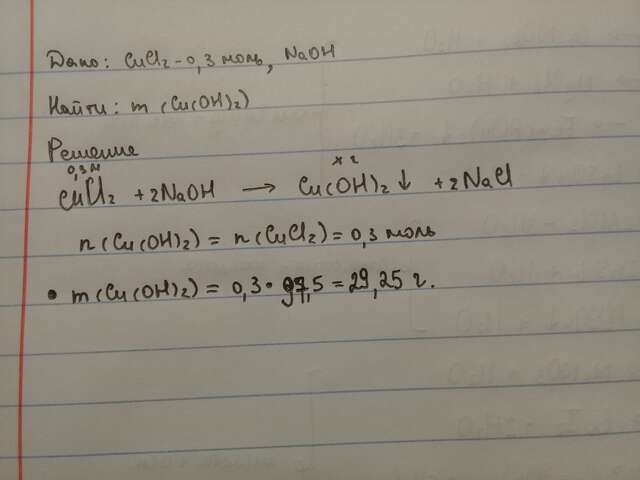 Дано: CuCl2 - 0,3 моль, NaOH
Найти: m (Cu(OH)2)
Решение
0,3 м x г
CuCl2 + 2NaOH → Cu(OH)2↓ + 2NaCl
n (Cu(OH)2) = n (CuCl2) = 0,3 моль
• m (Cu(OH)2) = 0,3 • 97,5 = 29,25 г.